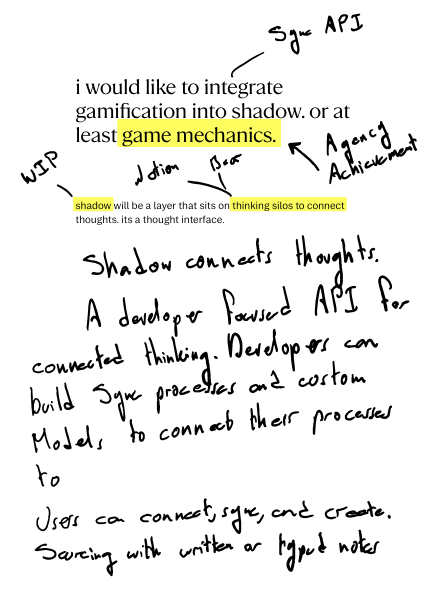 Sync API
i would like to integrate
gamification into shadow. or at
least game mechanics.
Agency
Achievement
WIP
Notion
Bear
shadow will be a layer that sits on thinking silos to connect
thoughts. its a thought interface.
Shadow connects thoughts.
A developer focused API for
connected thinking. Developers can
build Sync processes and custom
Models to connect their processes
to
Users can connect, sync, and create.
Sourcing with written or typed notes